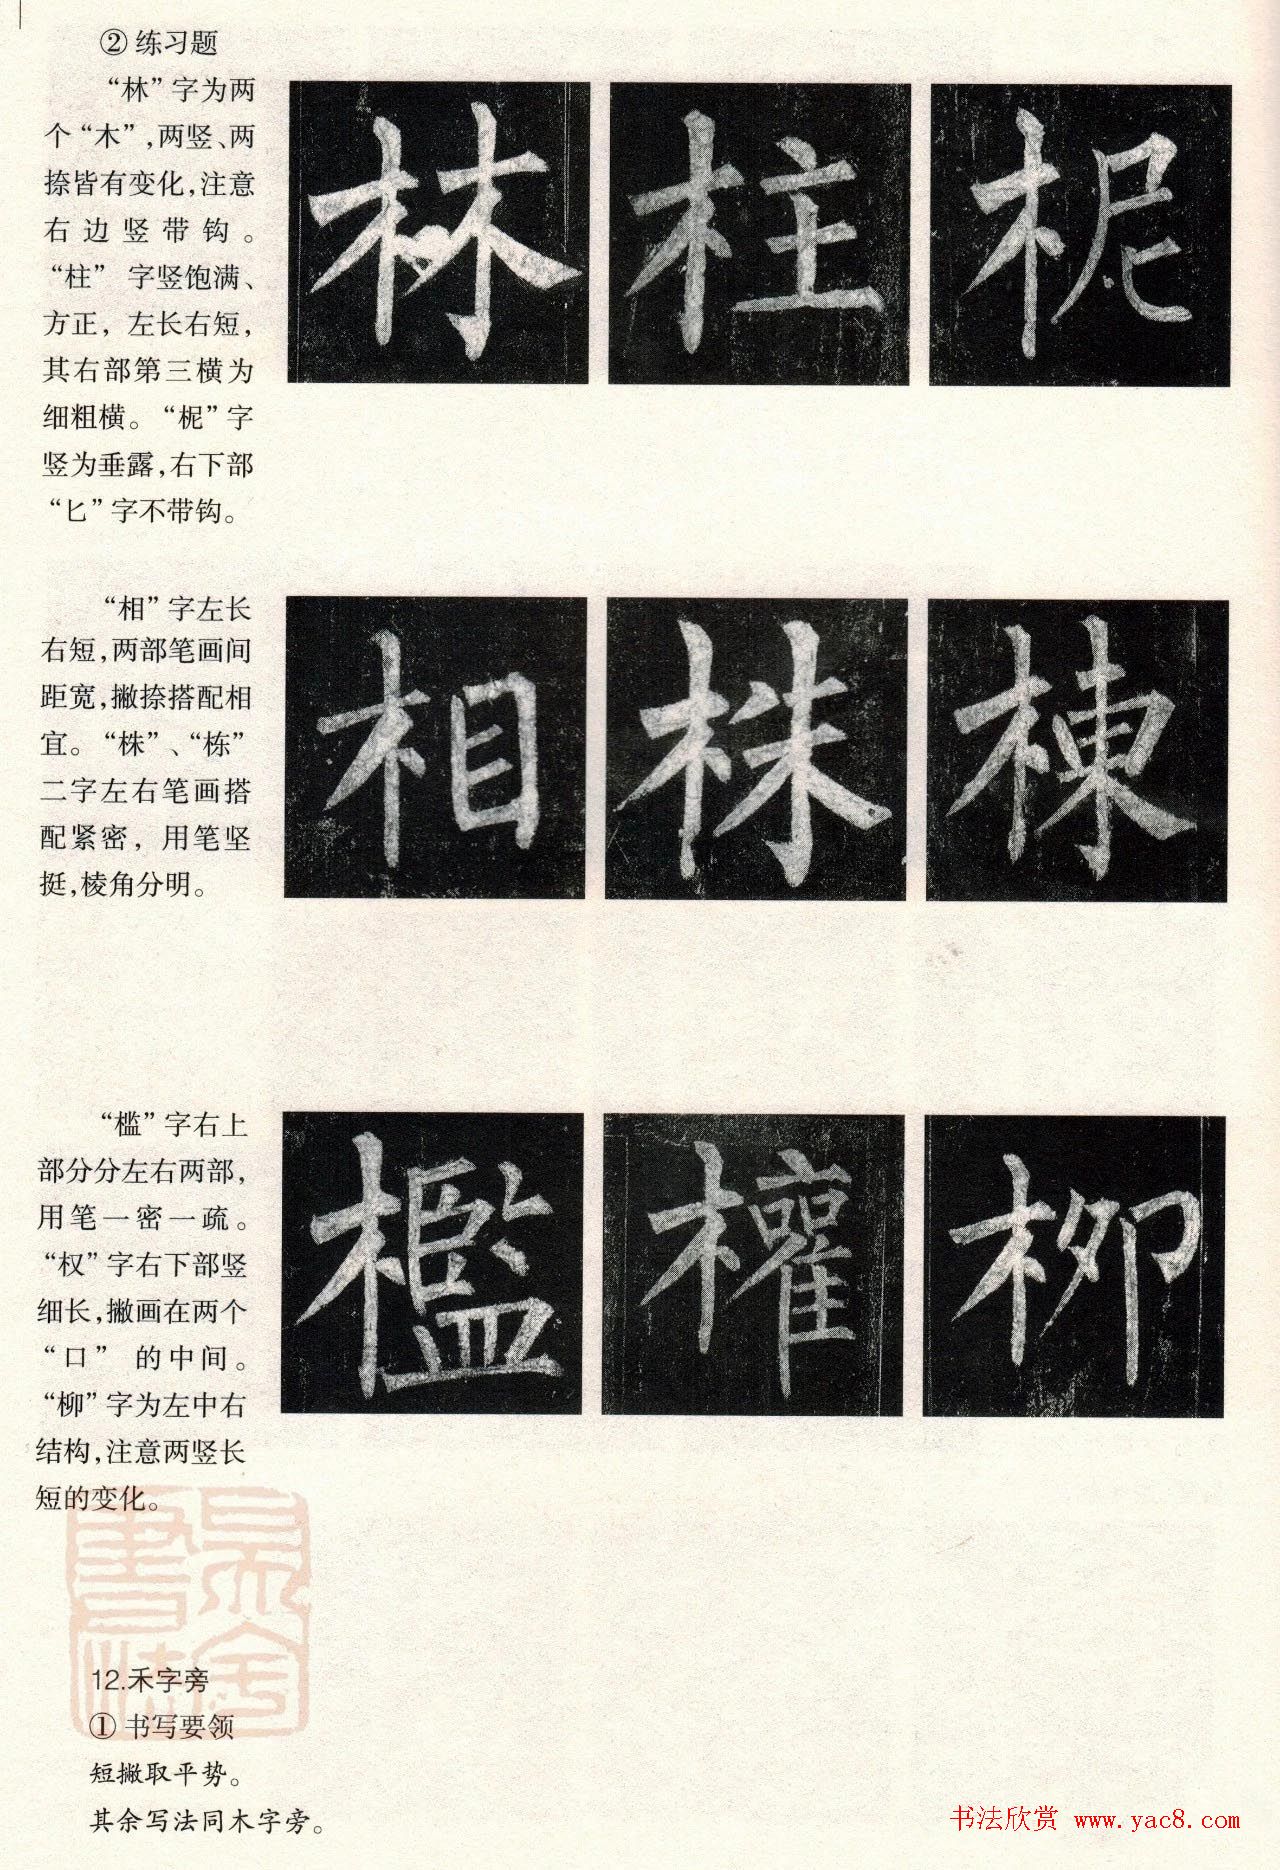 ② 练习题
“林”字为两
个“木”,两竖、两
捺皆有变化,注意
右边竖带钩。
“柱” 字竖饱满、
方正，左长右短，
其右部第三横为
细粗横。“柅”字
竖为垂露,右下部
“匕”字不带钩。
林 柱 柅
“相”字左长
右短,两部笔画间
距宽,撇捺搭配相
宜。“株”、“栋”
二字左右笔画搭
配紧密，用笔坚
挺,棱角分明。
相 株 棟
“槛”字右上
部分分左右两部,
用笔一密一疏。
“权”字右下部竖
细长,撇画在两个
“口” 的中间。
“柳”字为左中右
结构,注意两竖长
短的变化。
檻 權 柳
12.禾字旁
① 书写要领
短撇取平势。
其余写法同木字旁。
书法欣赏 www.yac8.com